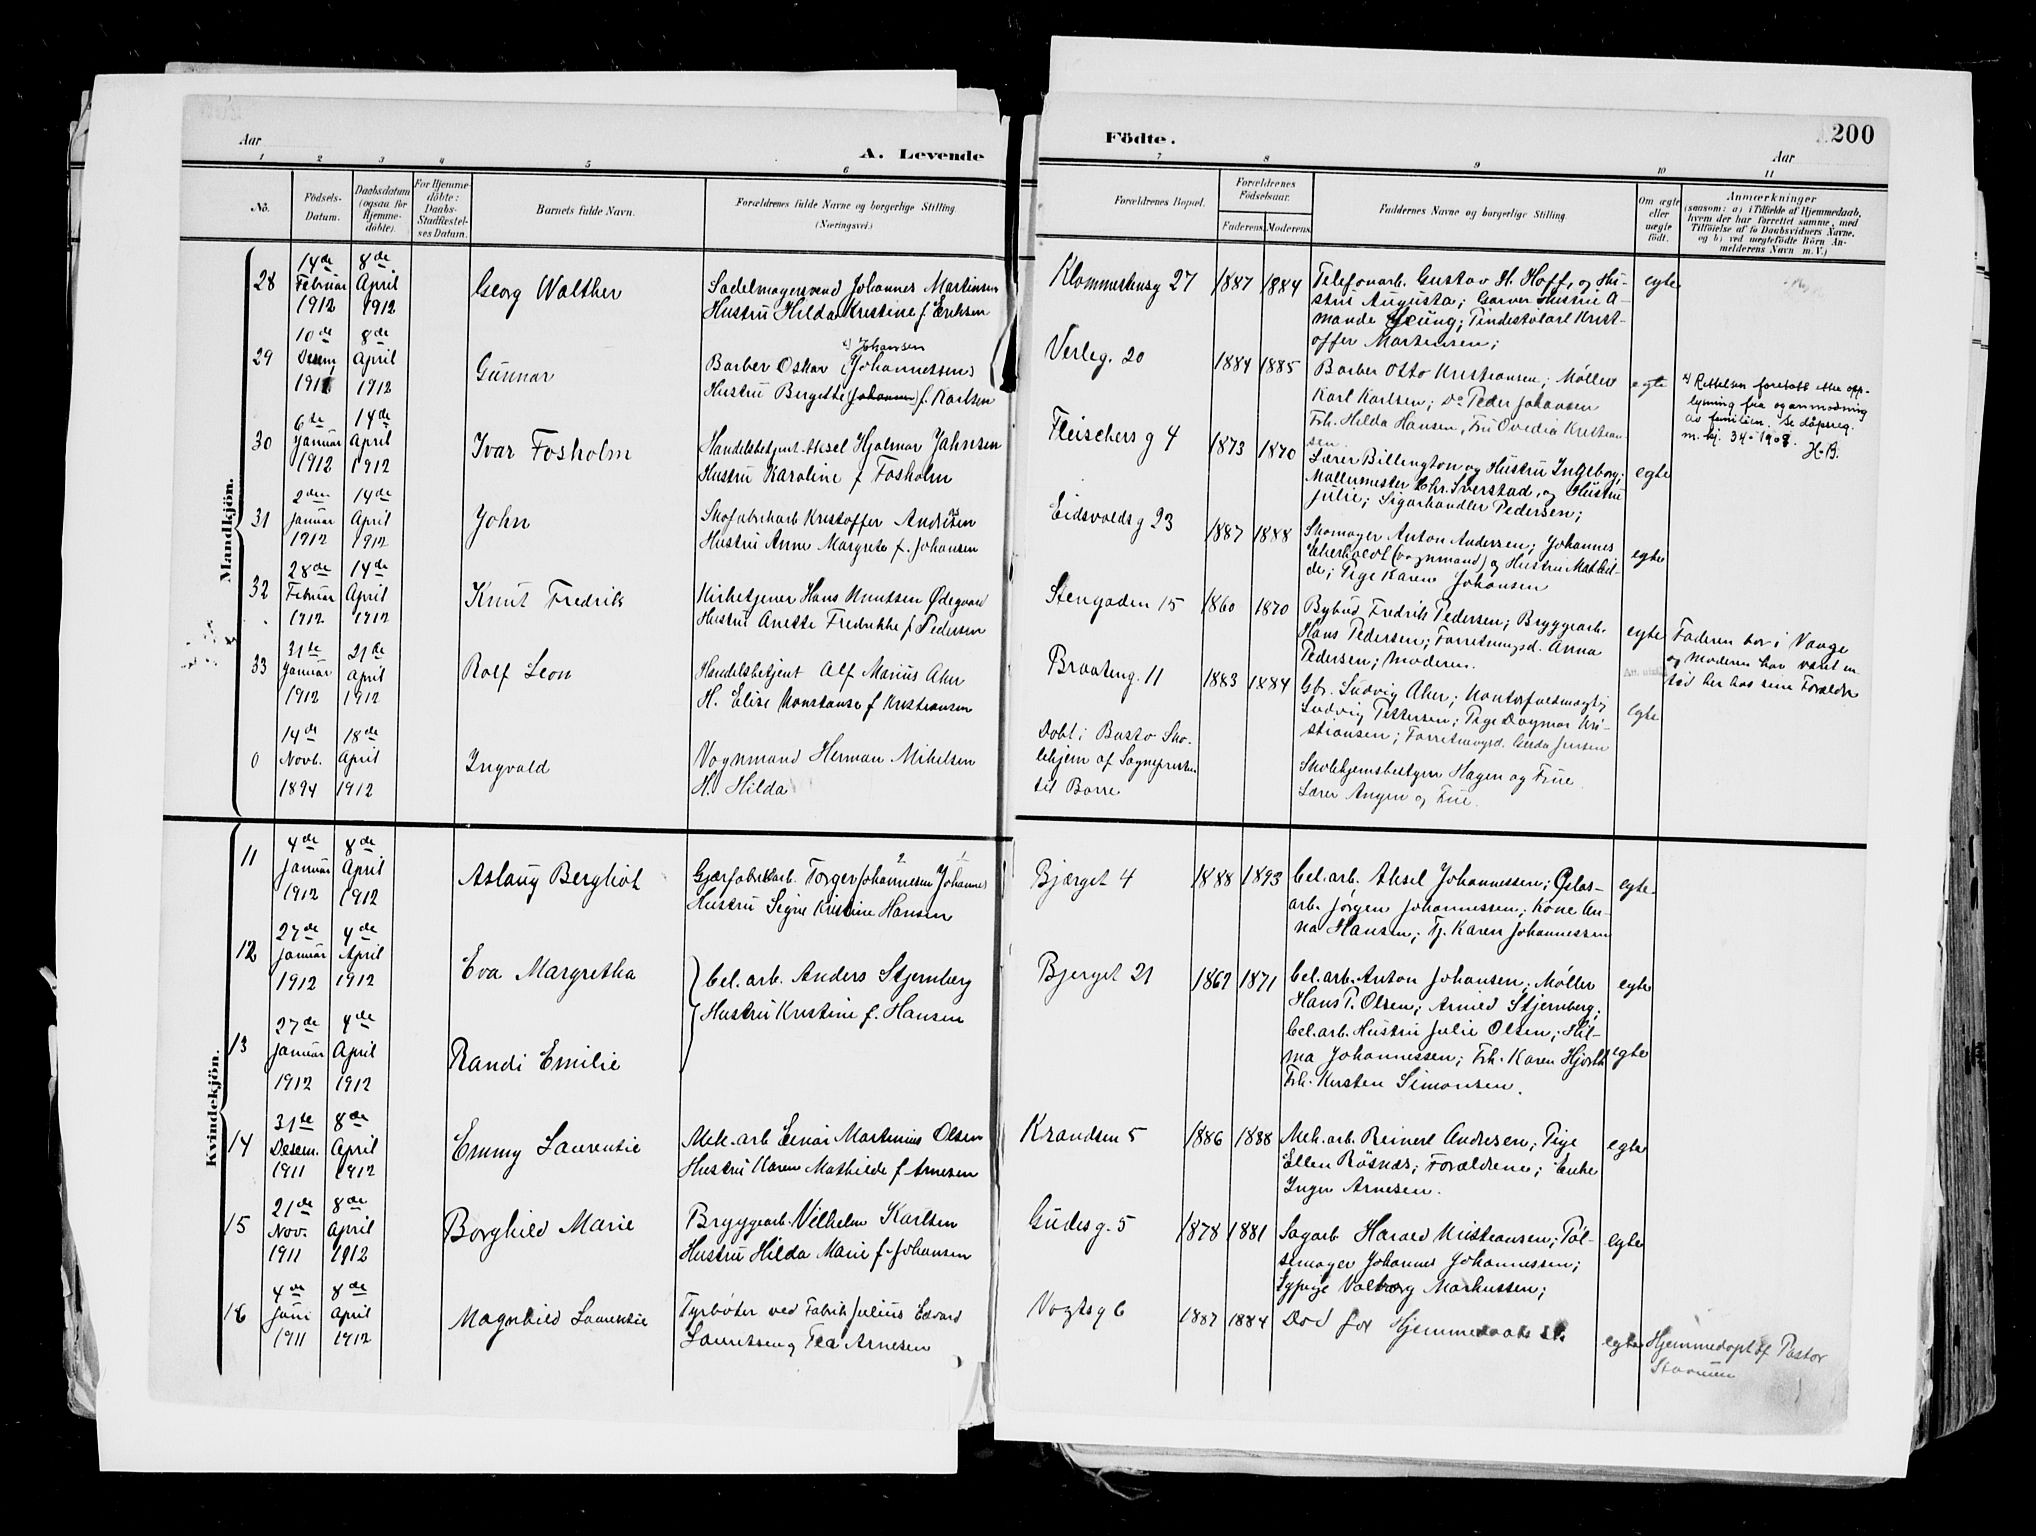 Aar
A. Levende
Födte.
Aar
200
1 2 3 4 5 6 7 8 9 10 11
No.
Födsels-
Datum.
Daabsdatum
(ogsaa for
Hjemme-
döbte).
For Hjemme-
döbte:
Daabs-
Stadfæstel-
ses Datum.
Barnets fulde Navn.
Forældrenes fulde Navne og borgerlige Stilling
(Næringsvei.)
Forældrenes Bopæl.
Forældrenes
Födselsaar.
Faderens. Moderens.
Faddernes Navne og borgerlige Stilling.
Om ægte
eller
uægte
födt.
Anmærkninger
(saasom: a) i Tilfælde af Hjemmedaab,
hvem der har forrettet samme, med
Tilföielse af to Daabsvidners Navne.
og b) ved uægtefödte Börn An-
melderens Navn m. V.)
Mandkjön.
28
14de
Februar
1912
8de
April
1912
Georg Walther
Sadelmagersvend Johannes Martinsen
Hustru Hilda Kristine f. Eriksen
1887 1884
Telefonarb. Gustav H. Hoff, og Hu-
stru Augusta; Garver Hustru A-
mande
Krist-
offer Martensen;
egte
29
10de
Desem
1911
8de
April
1912
Gunnar
x) Johansen
Barber Oskar (Johannessen)
Hustru Bergette (Johansen) f. Karlsen
Verleg. 20
1884 1885
Barber Otto Kristiansen; Møller
Karl Karlsen; Do Peder Johansen
Frk. Hilda Hansen, Fru Ovedia Kristian-
sen.
egte
x) Rettelsen foretatt efter opp-
lysning fra og anmodning
av familien. Se dåpsreg.
m. kj. 34-1908. H.B.
30
6te
Januar
1912
14de
April
1912
Ivar Fosholm
Handelsbetjent Aksel Hjalmar Jahnsen
Hustru Karoline f Fosholm
Fleischers g 4
1873 1870
Lærer Billington og Hustru Ingeborg;
Mallermester Chr. Sverstad, og Hustru
Julie; Sigarhandler Pedersen;
egte
31
2den
Januar
1912
14de
April
1912
John
Skofabrikarb Kristoffer Andresen
Hustru Anne Margrete f. Johansen
Eidsvolds g 23
1887 1888
Skomager Anton Andersen; Johannes
(vognmand) og Hustru Mathil-
de; Pige Karen Johansen
egte
32
28de
Februar
1912
14de
April
1912
Knut Fredrik
Kirketjener Hans Knutsen Ødegaard
Hustru Anette Fredrikke f Pedersen
Stengaden 15
1860 1870
Bybud Fredrik Pedersen; Bryggearb.
Hans Pedersen; Forretningsd. Anna
Pedersen; Moderen.
egte
Faderen bor i Vaage
og Moderen har været en
tid her hos sine Forældre
33
31te
Januar
1912
21de
April
1912
Rolf Leon
Handelsbetjent Alf Marius Aker
H. Elise Konstanse f Kristiansen
Braateng. 11
1883 1884
Gbr. Ludvig Aker; Kontorfuldmægtig
Ludvig Pettersen; Pige Dagmar Kri-
stiansen; Forretningsd. Gerda Jensen
egte
0
14de
Novb.
1894
18de
April
1912
Ingvald
Vognmand Herman Mikelsen
H. Hilda
Døbt i Bastø Sko-
lehjem af Sognepresten
til Borre
Skolehjemsbestyrer Hagen og Frue
Lærer Angen og Frue.
Kvindekjön.
11
4de
Januar
1912
8de
April
1912
Aslaug Bergliot
2 1
Gjærfabrikarb. Torger Johannesen Johannes
Hustru Signe Kristine Hansen
Bjærget 4
1888 1893
Cel. arb. Aksel Johannessen; Oplos-
arb. Jørgen Johannessen; Kone An-
na Hansen; Tj. Karen Johannessen
egte
12
27de
Januar
1912
4de
April
1912
Eva Margretha
Cel. arb. Anders Stjernberg
Hustru Kristine f. Hansen
Bjerget 21
1867 1871
Cel. arb. Anton Johansen; Møller
Hans P. Olsen; Arnild Stjernberg;
Cel. arb. Hustru Julie Olsen; Hil-
ma Johannessen; Frk. Karen Hjorth
Frk. Kirsten Simonsen.
egte
13
27de
Januar
1912
4de
April
1912
Randi Emilie
egte
14
31te
Desem.
1911
8de
April
1912
Emmy Laurentie
Mek. arb Einar Martinius Olsen
Hustru Karen Mathilde f Arnesen
Krandsen 5
1886 1888
Mek. arb. Reinert Andresen; Pige
Ellen Røsnæs; Forældrene; Enke
Inger Arnesen.
egte
15
21de
Nov.
1911
8de
April
1912
Borghild Marie
Bryggearb. Vilhelm Karlsen
Hustru Hilda Marie f. Johansen
Gudes g. 5
1878 1881
Sagarb Harald Kristiansen; Pøl-
semager Johannes Johannessen;
Sypige Valborg Markussen;
egte
16
4de
Juni
1911
8de
April
1912
Magnhild Laurentie
Fyrbøter ved Fabrik Julius Edvard
Lauritsen og Tea Arnesen
Vogts g 6
1887 1884
Død før
egte
Hjemmedøpt af Pastor